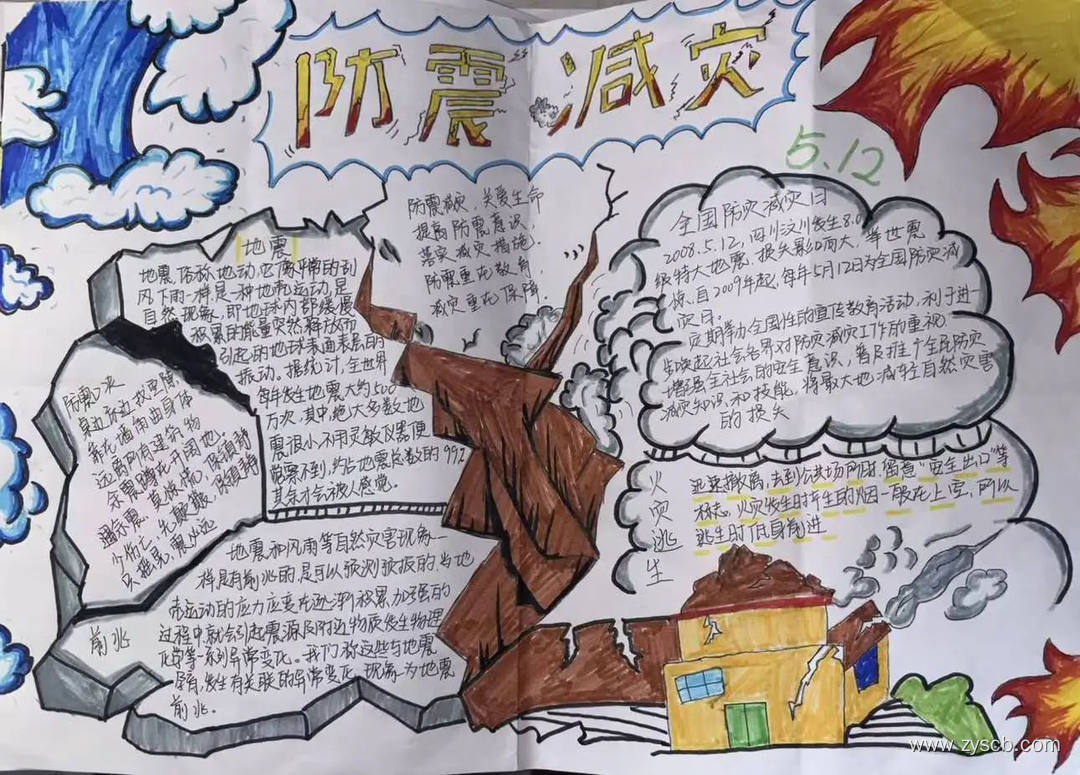 防震减灾
5.12
防震减灾、关爱生命
提高防震意识、
落实减灾措施、
防震重在教育、
减灾重在保障.
全国防灾减灾日
2008.5.12,四川汶川发生8.0
级特大地震,损失影响巨大,举世震
惊,自2009年起,每年5月12日为全国防灾减
灾日。
定期举办全国性的宣传教育活动,利于进一
步唤起社会各界对防灾减灾工作的重视,
增强全社会的安全意识,普及推全民防灾
减灾知识和技能,将最大地减轻自然灾害
的损失
地震
地震,俗称地动,它像平常的刮
风下雨一样是一种地壳运动,是
自然现象,即地球内部缓慢
积累的能量突然释放而
引起的地球表面表层的
振动。据统计,全世界
每年发生地震大约500
万次,其中,绝大多数地
震很小,不用灵敏仪器便
觉察不到,约占地震总数的99%
其余才会被人感觉。
防震口决
靠在墙角曲身体
远离所有建筑物
余震蹲在开阔地。
火灾逃生
迅速撤离,去到公共场所时,留意“安全出口”等
标志,火灾发生时产生的烟一般在上空,所以
逃生时低身前进
前兆
地震和风雨等自然灾害现象一
样是有前兆的是可以预测预报的,当地
壳运动的应力应变在逐渐积累、加强的
过程中就会引起震源及附近物质发生物理
化学等一系列异常变化。我们称这些与地震
孕育、发生有关联的异常变化现象为地震
前兆。
www.zyscb.com